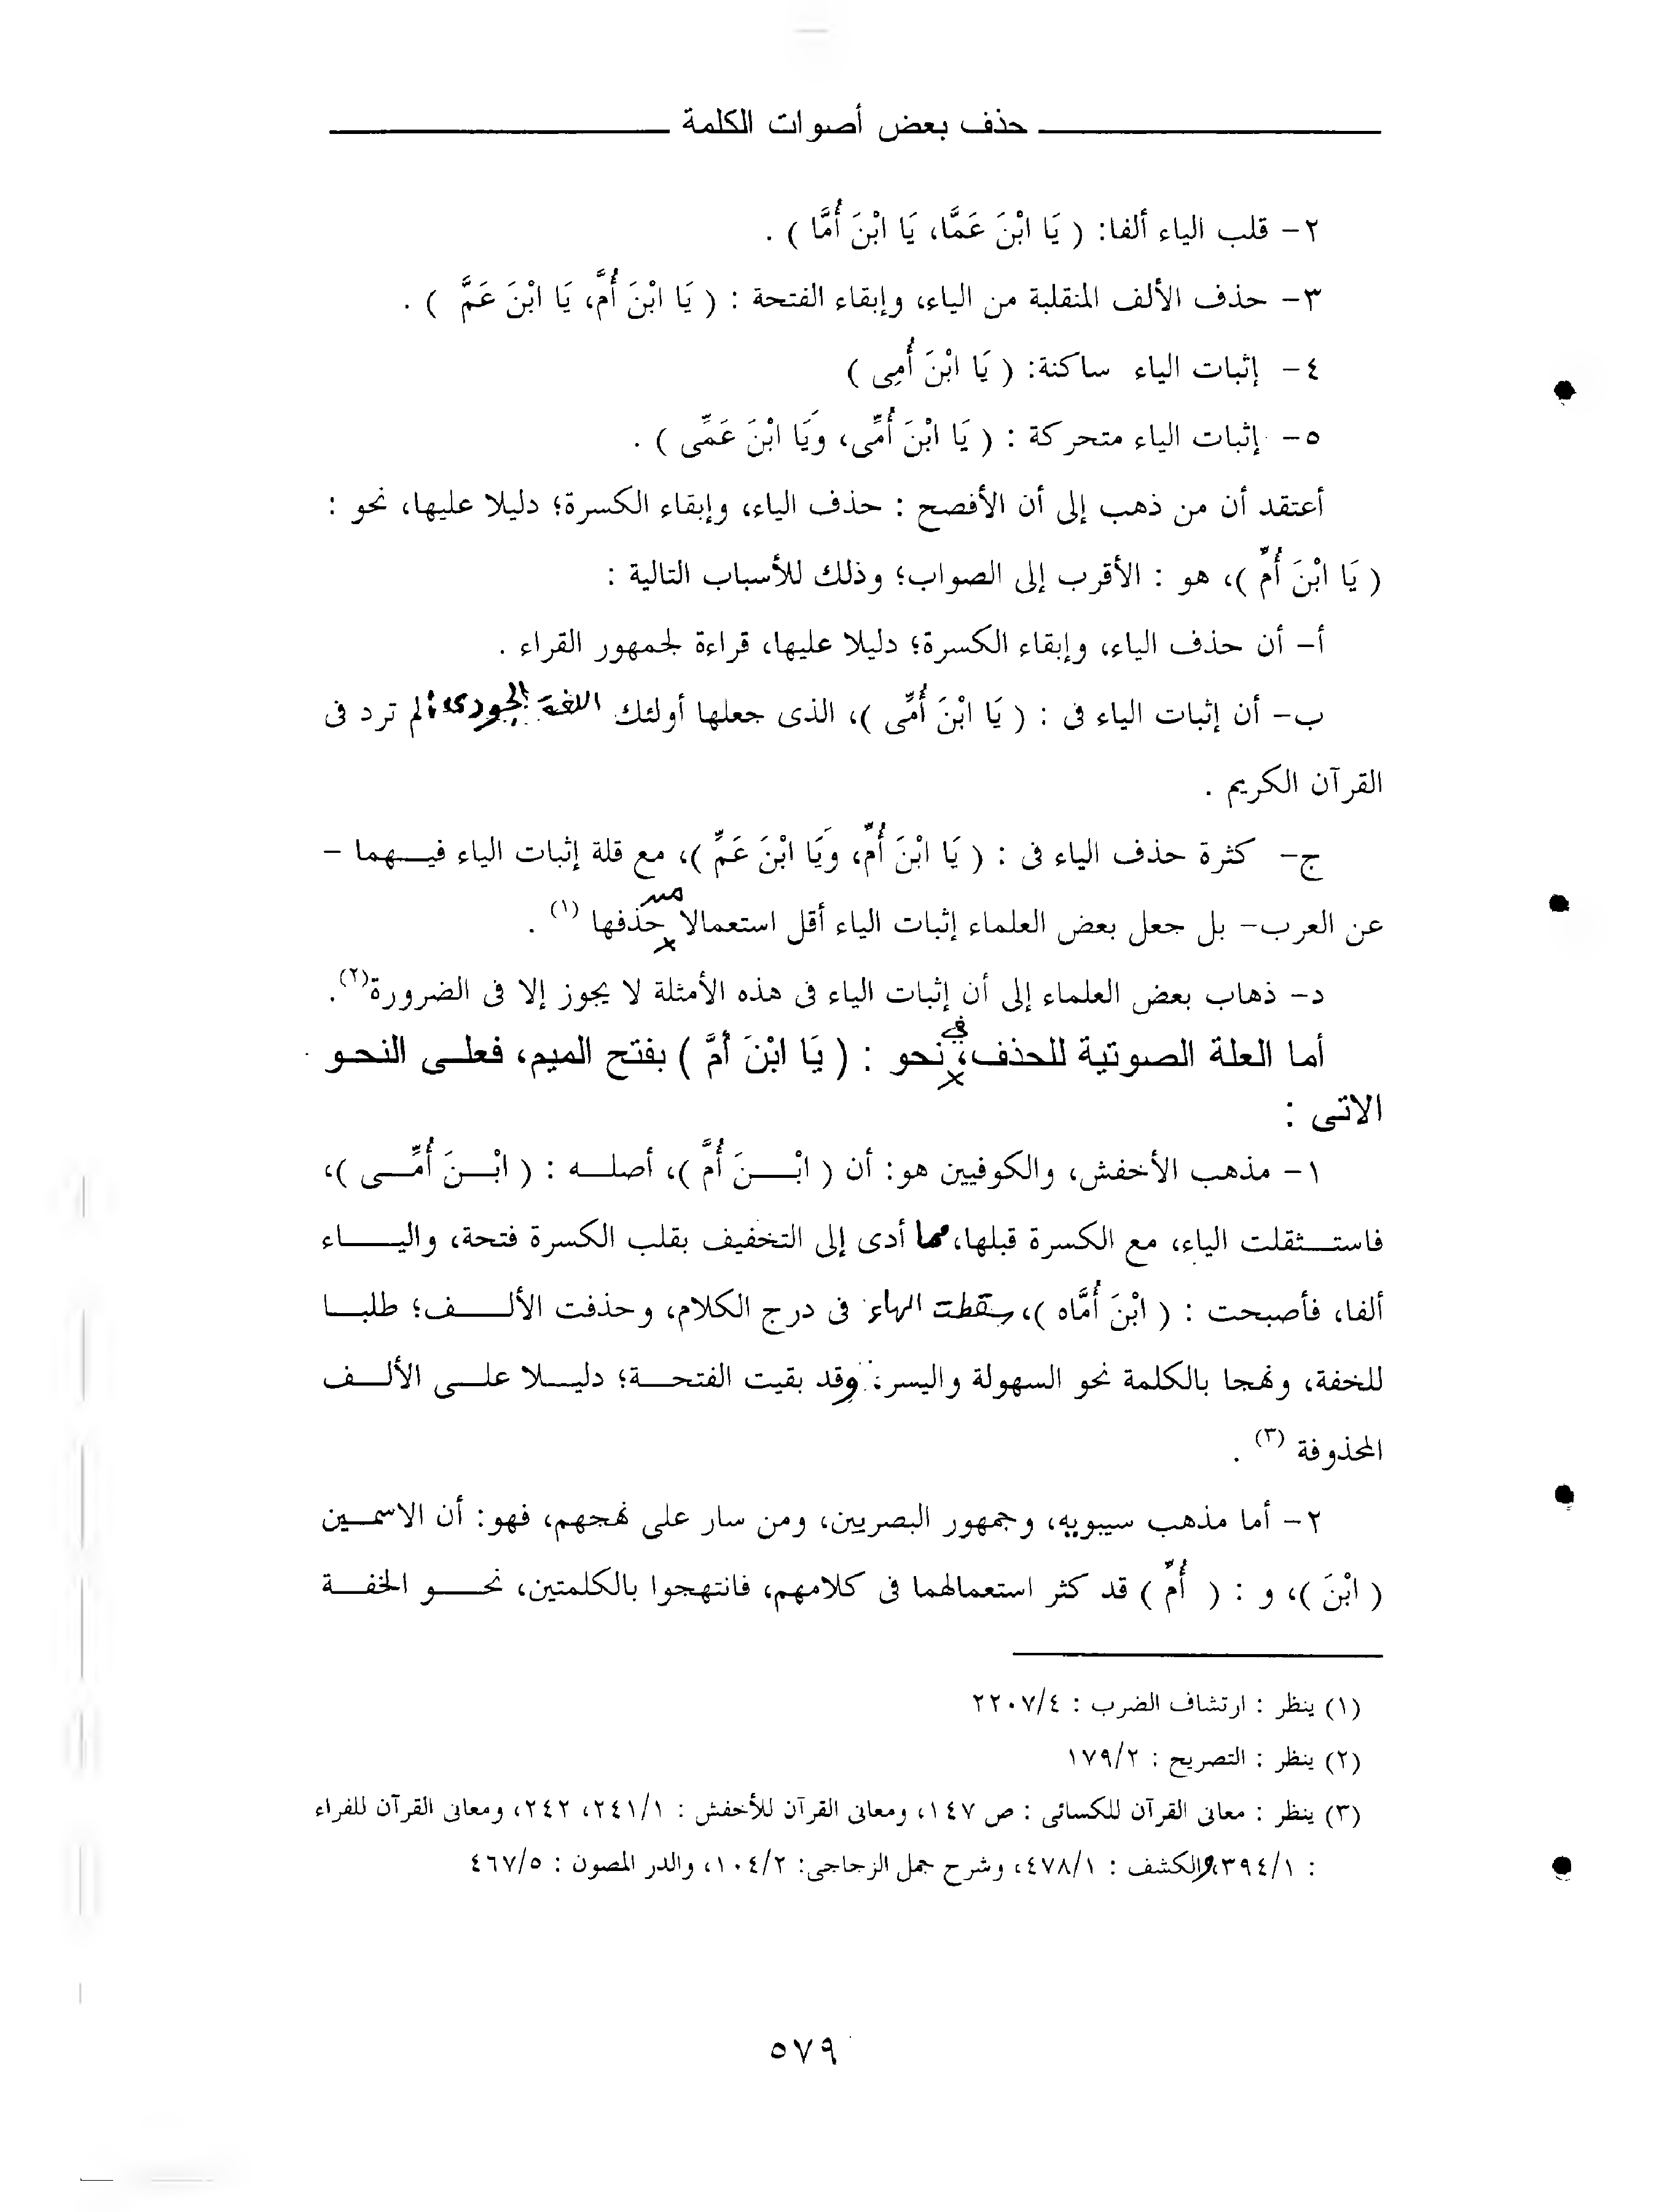 حذف بعض أصوات الكلمة
٢- قلب الياء ألفا: ( يَا ابْنَ عَمَّا، يَا ابْنَ أُمَّا ) .
٣- حذف الألف المنقلبة من الياء، وإبقاء الفتحة : ( يَا ابْنَ أُمَّ، يَا ابْنَ عَمَّ ) .
٤- إثبات الياء ساكنة: ( يَا ابْنَ أُمِى )
٥- إثبات الياء متحركة : ( يَا ابْنَ أُمِّى، وَيَا ابْنَ عَمِّى ) .
أعتقد أن من ذهب إلى أن الأفصح : حذف الياء، وإبقاء الكسرة؛ دليلا عليها، نحو :
( يَا ابْنَ أُمِّ )، هو : الأقرب إلى الصواب؛ وذلك للأسباب التالية :
أ- أن حذف الياء، وإبقاء الكسرة؛ دليلا عليها، قراءة لجمهور القراء .
ب- أن إثبات الياء فى : ( يَا ابْنَ أُمِّى )، الذى جعلها أولئك اللغة الجودى؛ لم ترد فى
القرآن الكريم .
ج- كثرة حذف الياء فى : ( يَا ابْنَ أُمِّ، وَيَا ابْنَ عَمِّ )، مع قلة إثبات الياء فيهما -
عن العرب- بل جعل بعض العلماء إثبات الياء أقل استعمالا من حذفها (١) .
د- ذهاب بعض العلماء إلى أن إثبات الياء فى هذه الأمثلة لا يجوز إلا فى الضرورة(٢).
أما العلة الصوتية للحذف، في نحو : ( يَا ابْنَ أُمَّ ) بفتح الميم، فعلى النحو
الاتى :
١- مذهب الأخفش، والكوفيين هو: أن ( ابْنَ أُمَّ )، أصله : ( ابْنَ أُمِّى )،
فاستثقلت الياء، مع الكسرة قبلها، مما أدى إلى التخفيف بقلب الكسرة فتحة، والياء
ألفا، فأصبحت : ( ابْنَ أُمَّاه )، سقطت الهاء فى درج الكلام، وحذفت الألف؛ طلبا
للخفة، ونهجا بالكلمة نحو السهولة واليسر، وقد بقيت الفتحة؛ دليلا على الألف
المحذوفة (٣) .
٢- أما مذهب سيبويه، وجمهور البصريين، ومن سار على نهجهم، فهو: أن الاسمين
( ابْنَ )، و : ( أُمِّ ) قد كثر استعمالهما فى كلامهم، فانتهجوا بالكلمتين، نحو الخفة
(١) ينظر : ارتشاف الضرب : ٢٢٠٧/٤
(٢) ينظر : التصريح : ١٧٩/٢
(٣) ينظر : معانى القرآن للكسائى : ص ١٤٧، ومعانى القرآن للأخفش : ٢٤١/١، ٢٤٢، ومعانى القرآن للفراء
: ٣٩٤/١، والكشف : ٤٧٨/١، وشرح جمل الزجاجى: ١٠٤/٢، والدر المصون : ٤٦٧/٥
٥٧٩